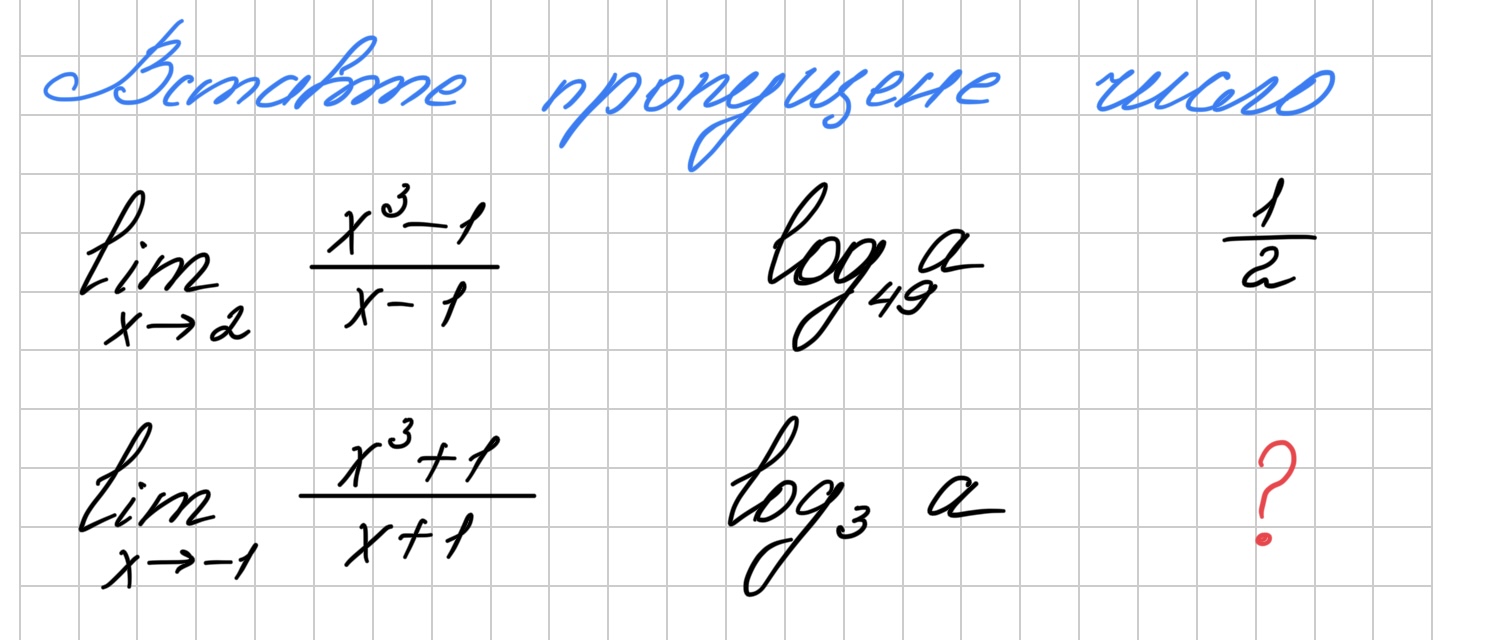 Вставте пропущене число
lim x→2 (x³−1)/(x−1) log₄₉ a 1/2
lim x→−1 (x³+1)/(x+1) log₃ a ?